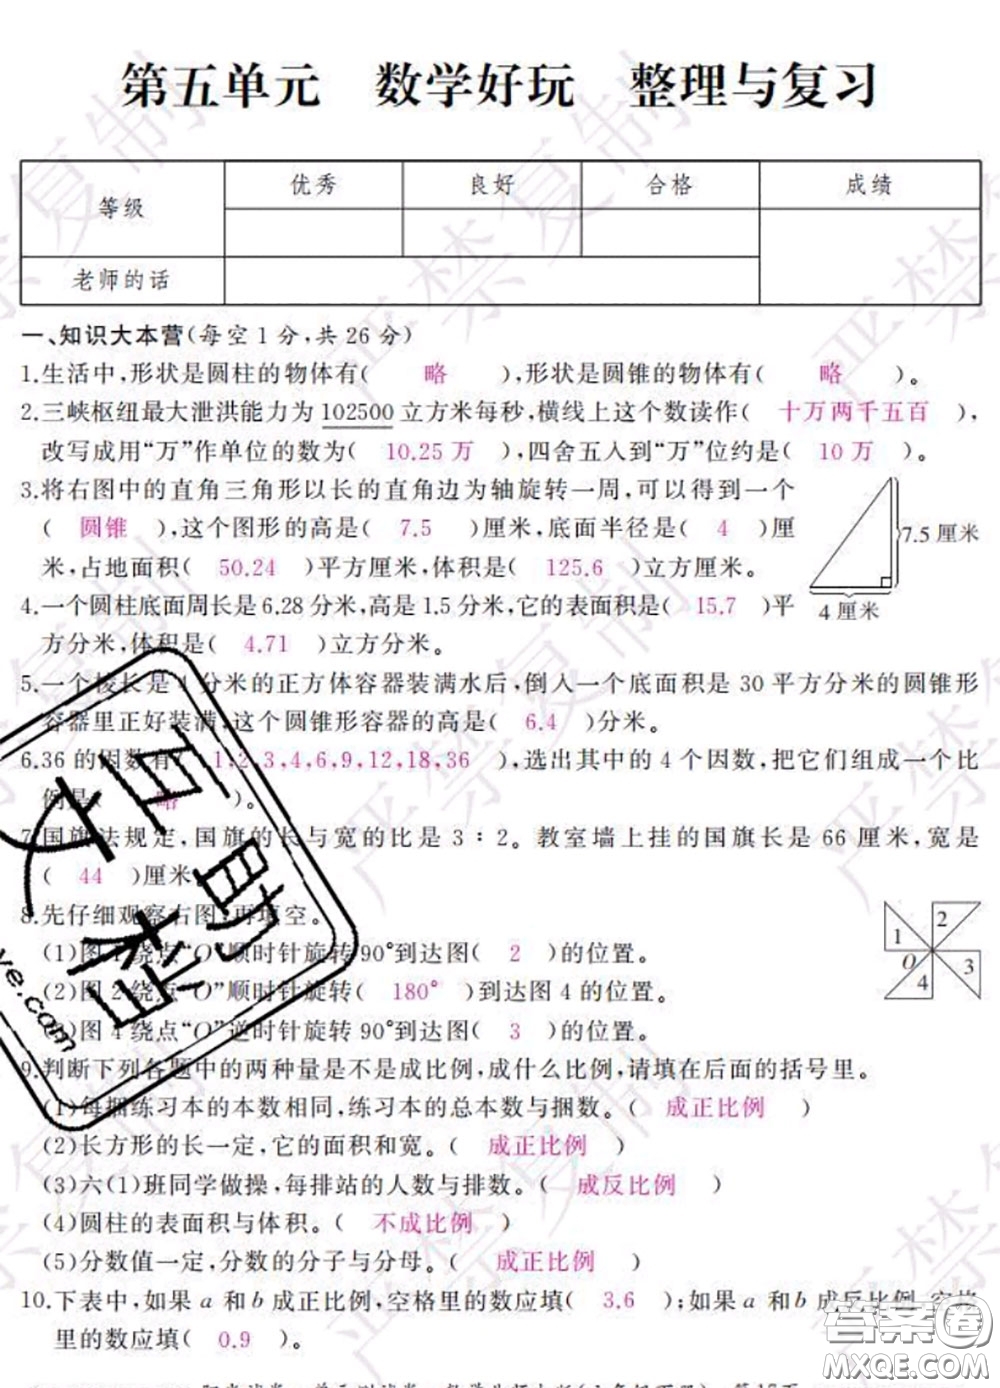 第五单元 数学好玩 整理与复习
等级 优秀 良好 合格 成绩
老师的话
一、知识大本营(每空1分,共26分)
1.生活中,形状是圆柱的物体有( 略 ),形状是圆锥的物体有( 略 )。
2.三峡枢纽最大泄洪能力为102500立方米每秒,横线上这个数读作( 十万两千五百 ),
改写成用“万”作单位的数为( 10.25万 ),四舍五入到“万”位约是( 10万 )。
3.将右图中的直角三角形以长的直角边为轴旋转一周,可以得到一个
( 圆锥 ),这个图形的高是( 7.5 )厘米,底面半径是( 4 )厘
米,占地面积( 50.24 )平方厘米,体积是( 125.6 )立方厘米。
7.5厘米
4厘米
4.一个圆柱底面周长是6.28分米,高是1.5分米,它的表面积是( 15.7 )平
方分米,体积是( 4.71 )立方分米。
5.一个棱长是4分米的正方体容器装满水后,倒入一个底面积是30平方分米的圆锥形
容器里正好装满,这个圆锥形容器的高是( 6.4 )分米。
6.36的因数有( 1,2,3,4,6,9,12,18,36 ),选出其中的4个因数,把它们组成一个比
例是( 略 )。
7.国旗法规定,国旗的长与宽的比是3∶2。教室墙上挂的国旗长是66厘米,宽是
( 44 )厘米
8.先仔细观察右图,再填空。
(1)图1绕点“O”顺时针旋转90°到达图( 2 )的位置。
(2)图2绕点“O”顺时针旋转( 180° )到达图4的位置。
)图4绕点“O”逆时针旋转90°到达图( 3 )的位置。
1 2 O 4 3
9.判断下列各题中的两种量是不是成比例,成什么比例,请填在后面的括号里。
(1)每捆练习本的本数相同,练习本的总本数与捆数。( 成正比例 )
(2)长方形的长一定,它的面积和宽。( 成正比例 )
(3)六(1)班同学做操,每排站的人数与排数。( 成反比例 )
(4)圆柱的表面积与体积。( 不成比例 )
(5)分数值一定,分数的分子与分母。( 成正比例 )
10.下表中,如果a和b成正比例,空格里的数应填( 3.6 );如果a和b成反比例,空格
里的数应填( 0.9 )。
严禁复制
答案圈
MXQE.COM